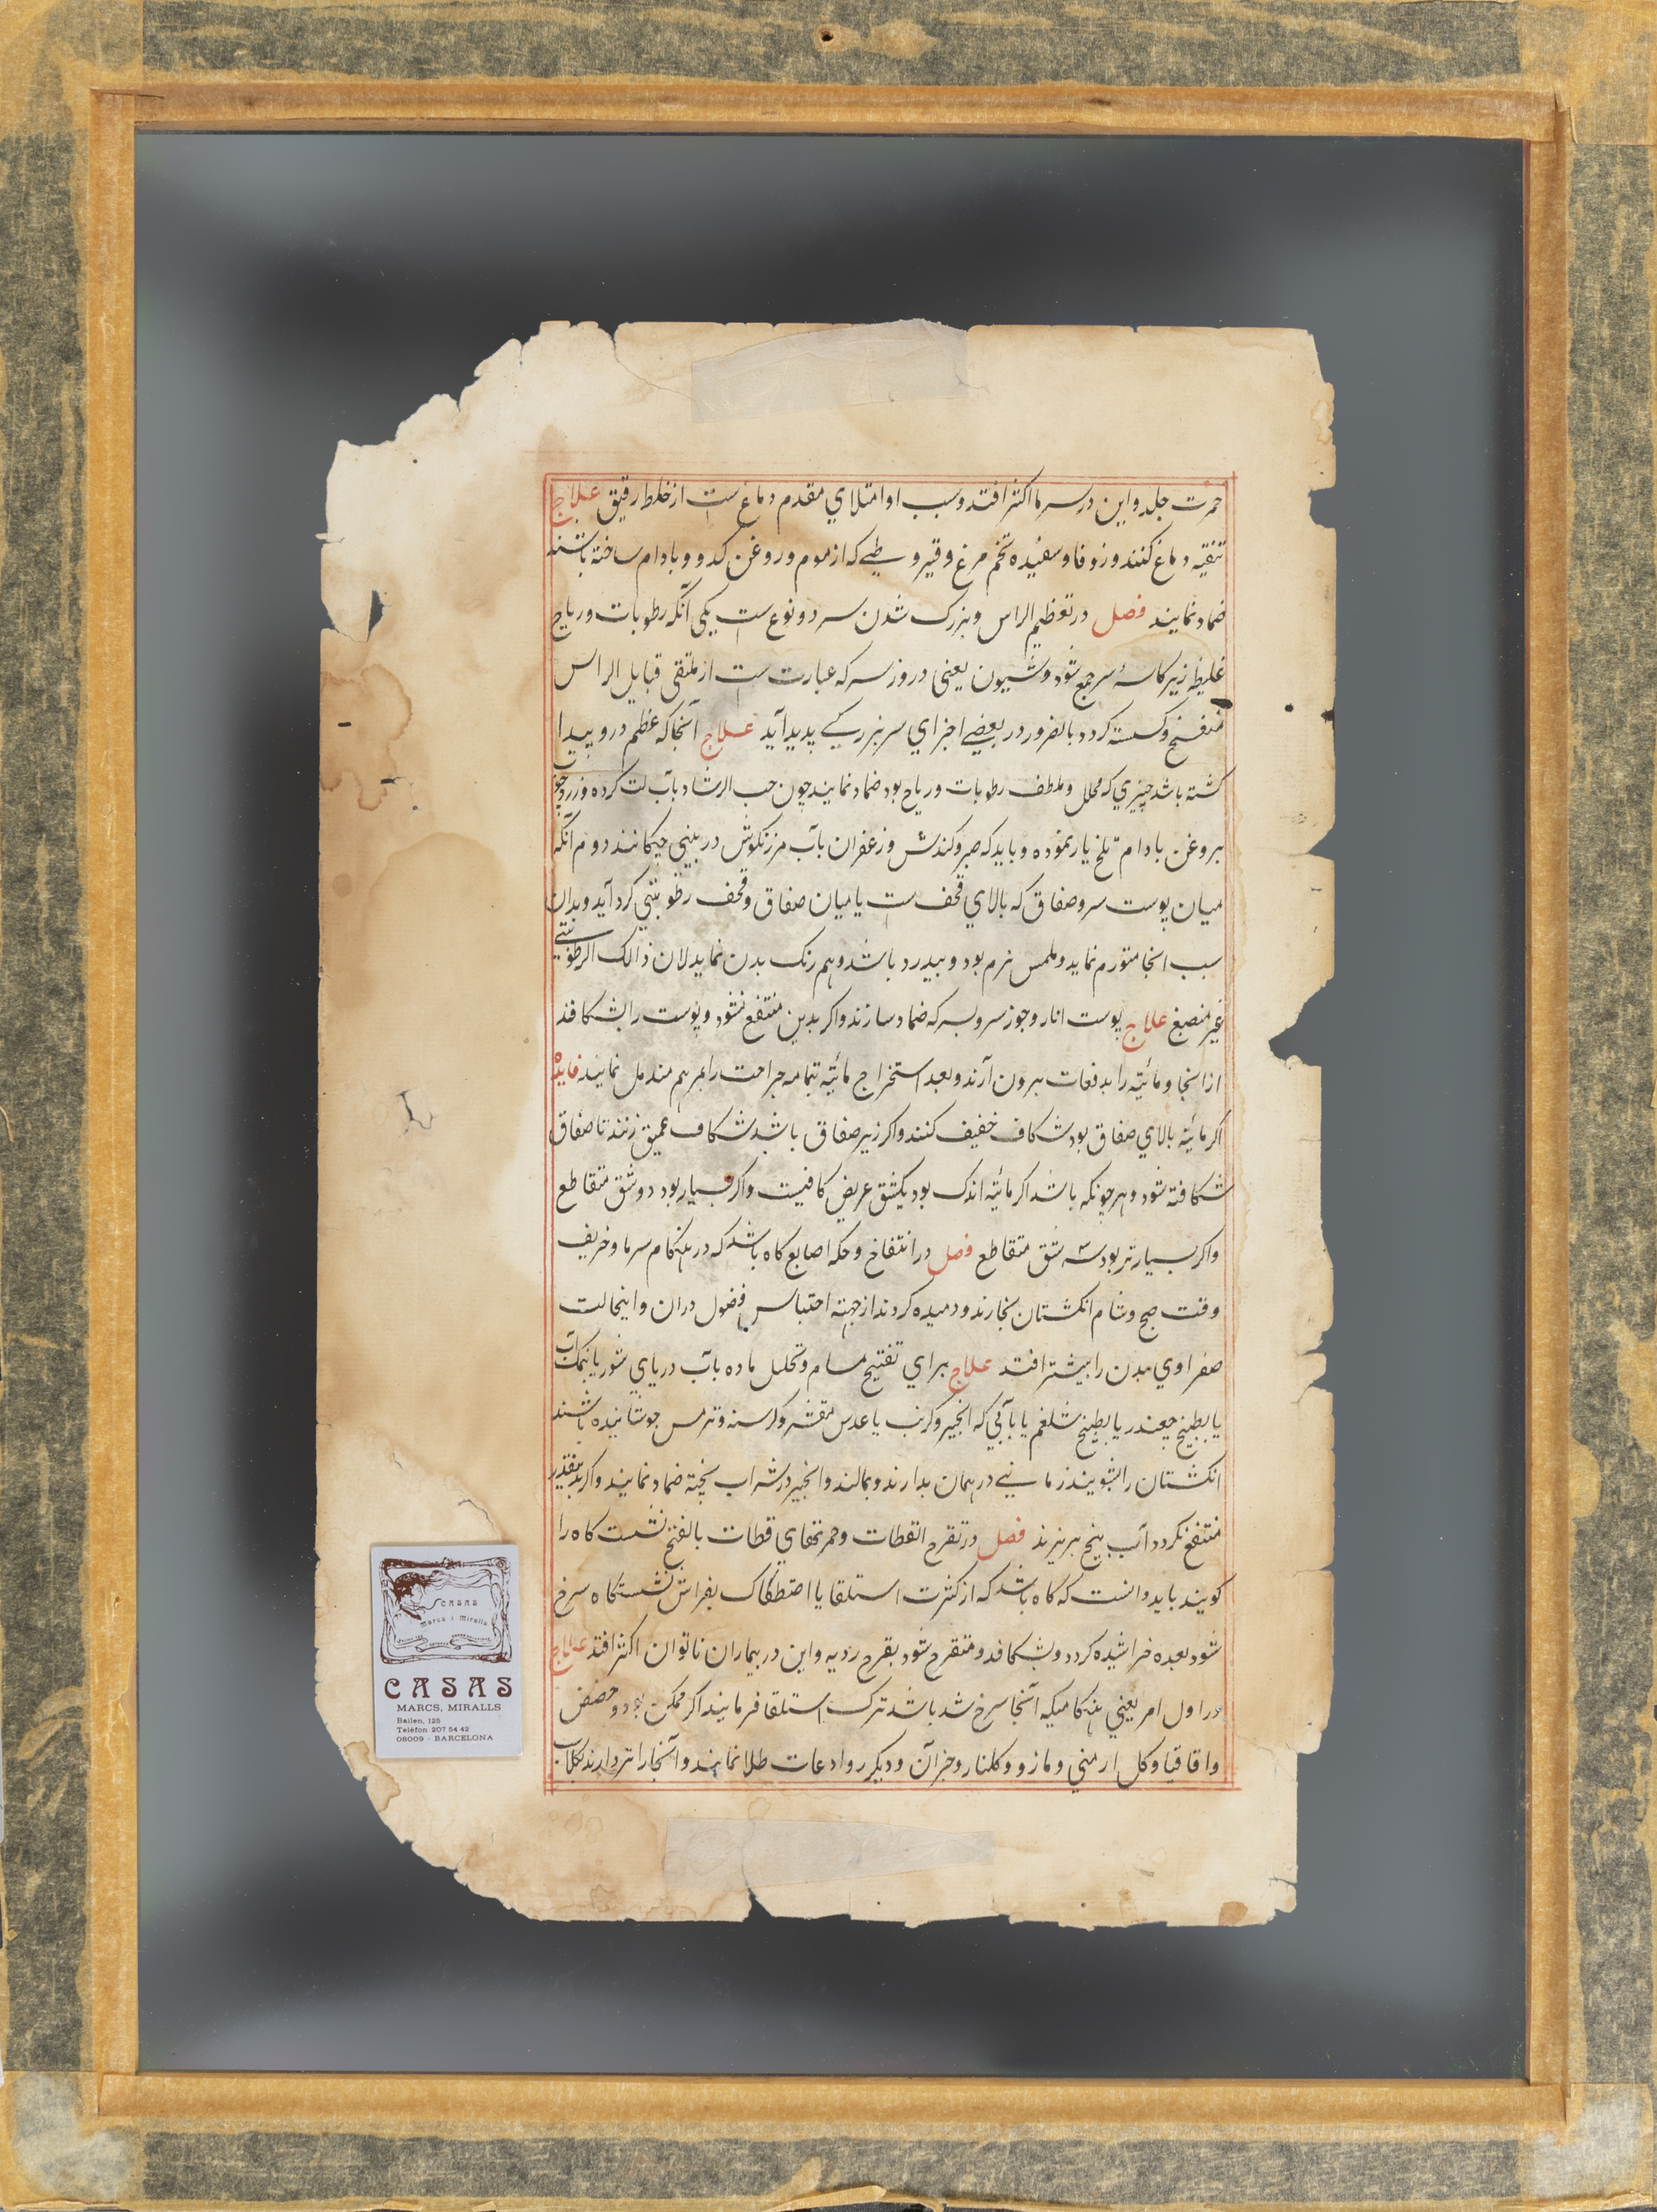 حمرت جلد و این در سرما اکثر افتد و سبب او امتلای مقدم دماغ ست از خلط رقیق علاج
تنقیه دماغ کنند و زوفا و سفیده تخم مرغ و قیروطی که از موم و روغن کدو و بادام ساخته باشند
ضماد نمایند فصل در تعظیم الراس و بزرک شدن سر دو نوع ست یکی آنکه رطوبات و ریاح
غلیظه زیر کاسهٔ سر جمع شود و شیون یعنی دروز سر که عبارت ست از ملتقی قبایل الراس
منفسخ و کسسته کردد بالضرور در بعضی اجزای سر بزرکی پدید آید علاج آنجا که عظم درو پیدا
کشته باشد چیزی که محلل و ملطف رطوبات و ریاح بود ضماد نمایند چون حب الرشاد بآب لت کرده و زرد چوبه
بروغن بادام تلخ یار نموده و باید که صبر و کندش و زعفران بآب مرزنکوش در بینی چکانند دوم آنکه
میان پوست سر و صفاق که بالای قحف ست یا میان صفاق و قحف رطوبتی کرد آید و بدان
سبب انجا متورم نماید و ملمس نرم بود و بیدرد باشد و هم رنک بدن نماید لان ذالک الرطوبتی
غیر منصبغ علاج پوست انار و جوز سرو بسرکه ضماد سازند و اکر بدین منتفع نشود و پوست را بشکافند
از انجا و مائیة را بدفعات بیرون آرند و بعد استخراج مائیة بتمامه جراحت را بمرهم مندمل نمایند فایده
اکر مائیة بالای صفاق بود شکاف خفیف کنند و اکر زیر صفاق باشد شکاف عمیق زنند تا صفاق
شکافته شود و هر چونکه باشد اکر مائیة اندک بود یکشق عریض کافیست و اکر بسیار بود دو شق متقاطع
و اکر بسیارتر بود سه شق متقاطع فصل در انتفاخ و حکه اصابع کاه باشد که در هنکام سرما و خریف
وقت صبح و شام انکشتان بخارند و دمیده کردند از جهته احتباس فضول دران و اینحالت
صفراوی بدن را بیشتر افتد علاج برای تفتیح مسام و تحلل ماده بآب دریای شور یا نمک آب
یا بطبیخ چغندر یا بطبیخ شلغم یا بآبی که انجیر و کرنب یا عدس مقشر و کرسنه و ترمس جوشانیده باشند
انکشتان را بشویند زمانی در همان بدارند و بمالند و انجیر در شراب پخته ضماد نمایند و اکر بدینقدر
منتفع نکردد آب بنج بریزند فصل در تقرح القطات و حمرتهای قطات بالفتح نشست کاه را
کویند باید دانست که کاه باشد که از کثرت استلقا یا اصطکاک بفراش نشستکاه سرخ
شود بعده خراشیده کردد و بشکافد و متقرح شود بقرح ردیه و این در بیماران ناتوان اکثر افتد علاج
در اول امر یعنی هنکامیکه آنجا سرخ شد باشد ترک استلقا فرمایند اکر ممکن بود و حضض
و اقاقیا و کل ارمنی و مازو و کلنار و جز آن و دیکر روادعات طلا نمایند و آنجا را تر دارند بکلاب
CASAS
Marcs i Miralls
CASAS
MARCS, MIRALLS
Bailen, 125
Telèfon 207 54 42
08009 - BARCELONA